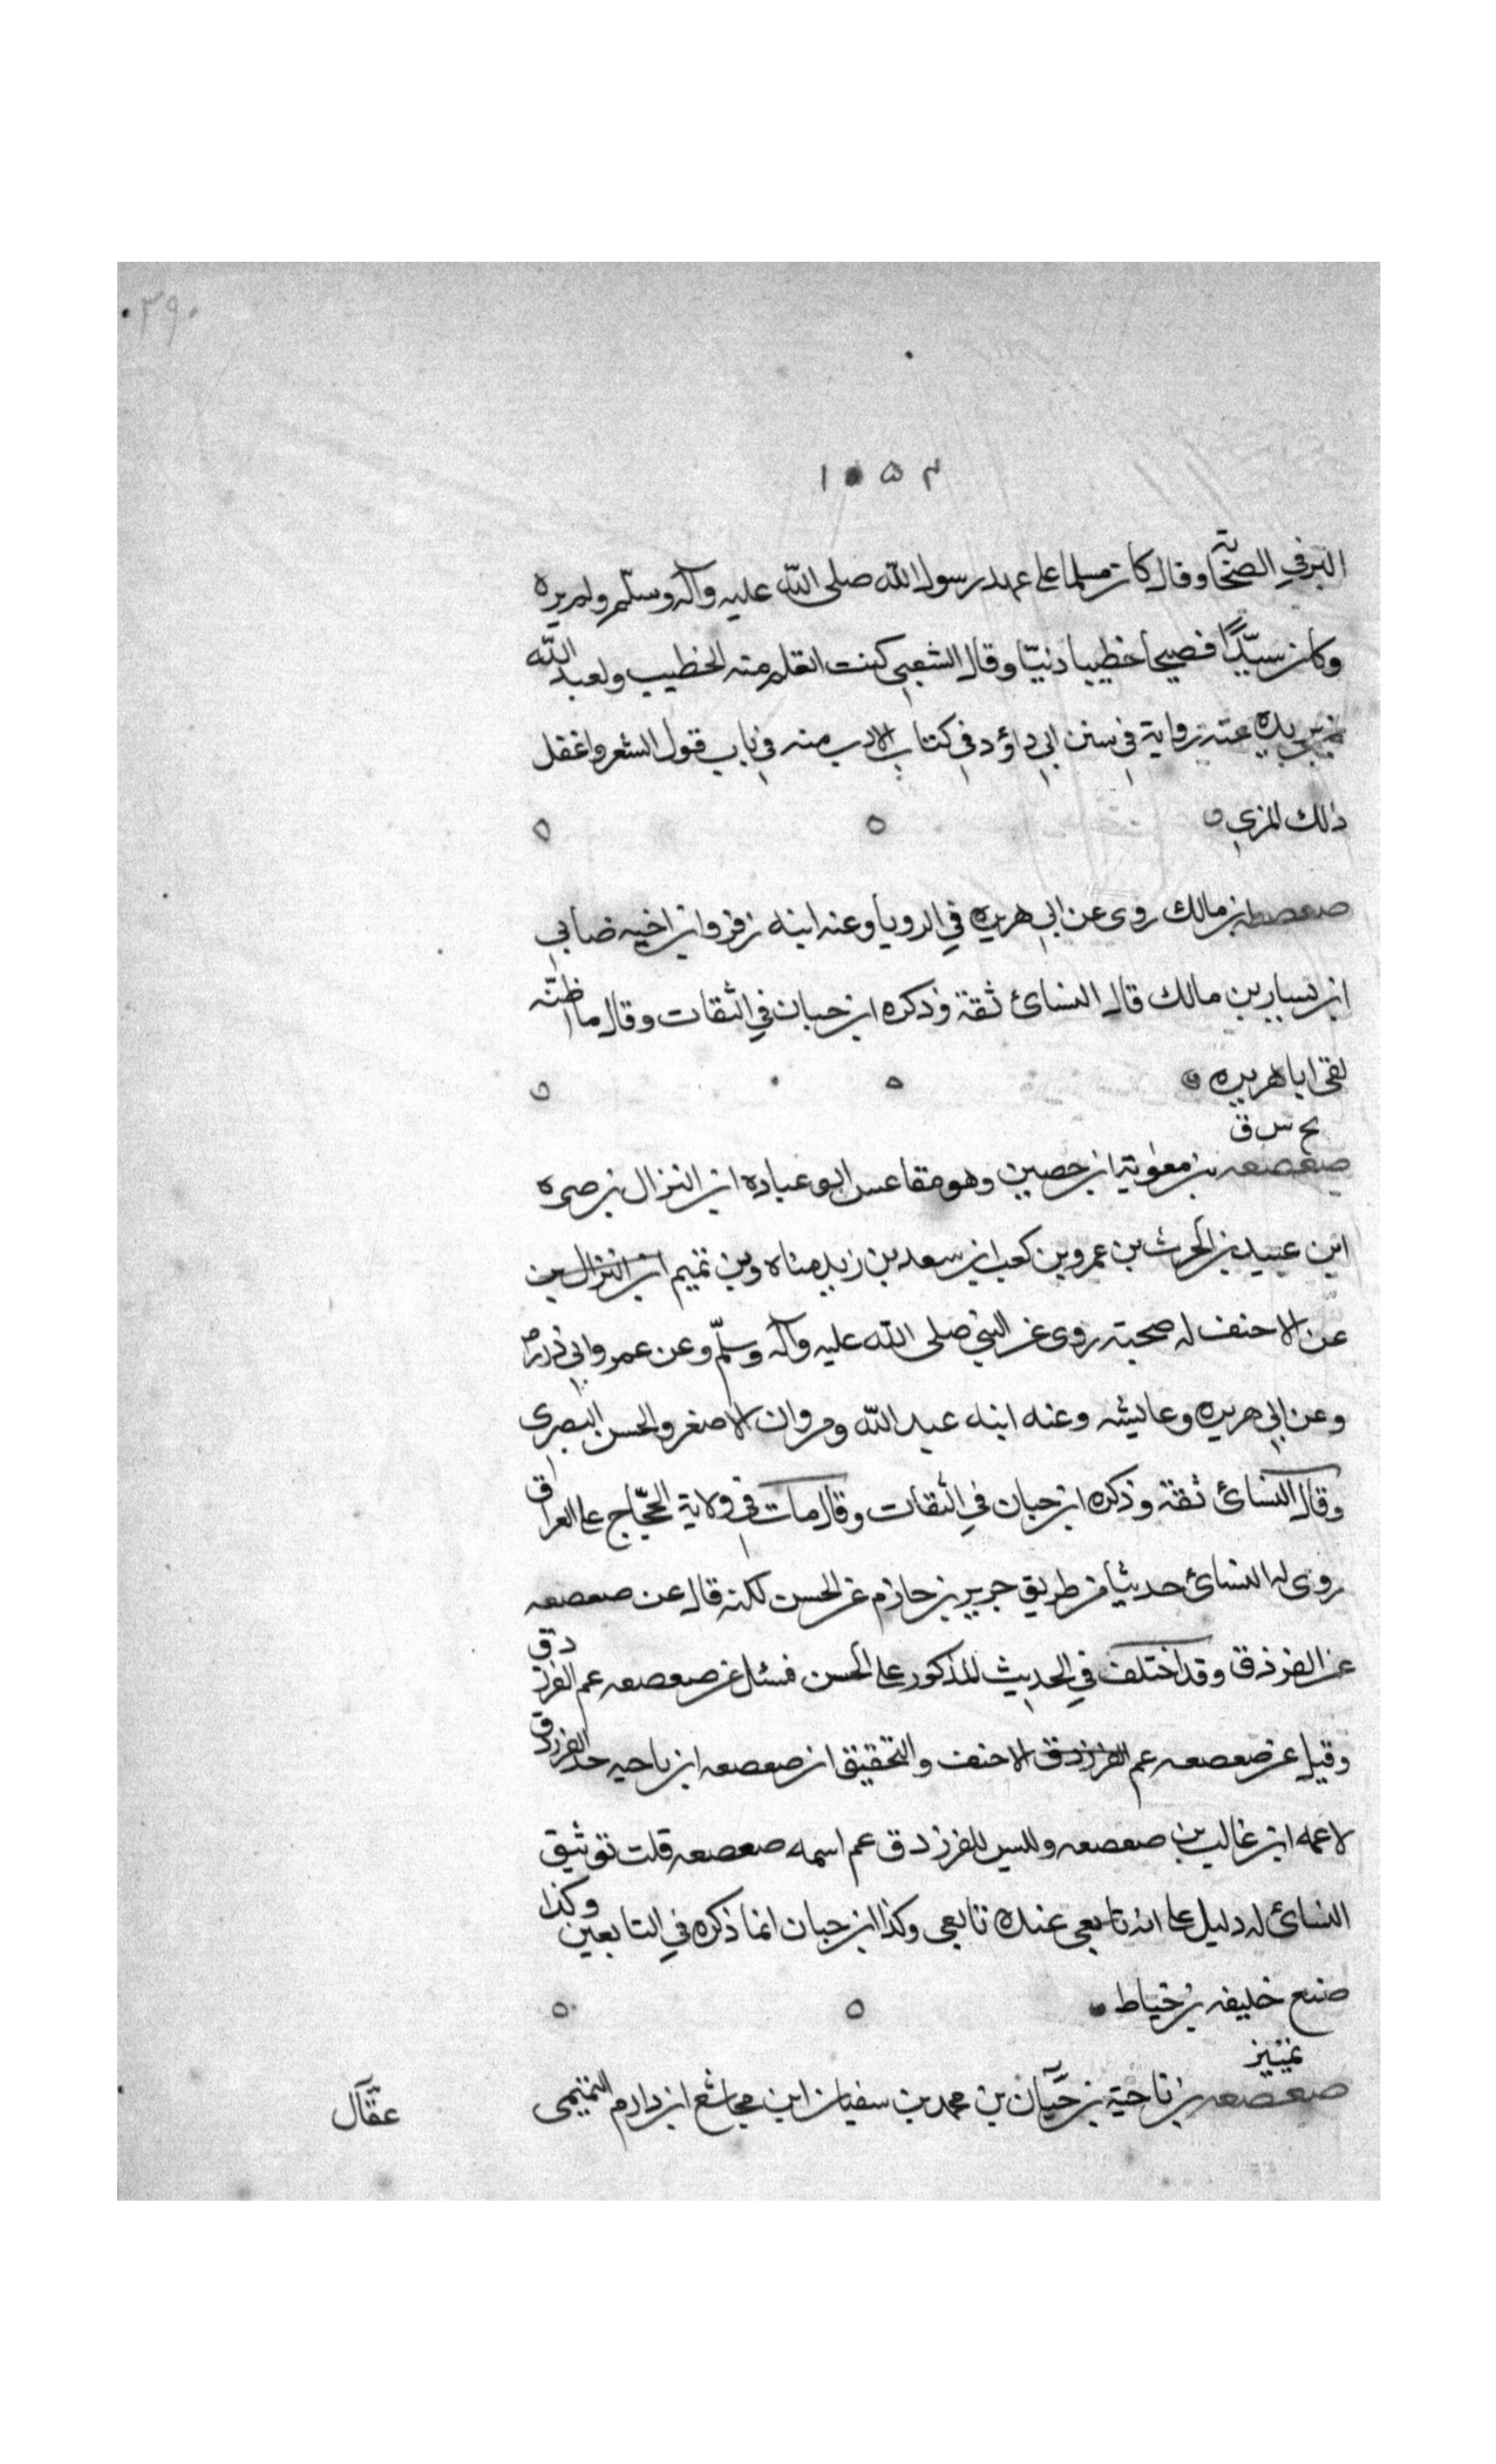 ٢٩٠
١٠٥٣
البر في الصحابة وقال كان مسلما على عهد رسول الله صلى الله عليه وآله وسلّم ولم يره
وكان سيّدًا فصيحا خطيبا دنيّا وقال الشعبي كنت اتعلم منه الخطيب ولعبد الله
بن بريده عنه رواية في سنن ابي داؤد في كتاب الادب منه في باب قول الشعر واغفل
ذلك المزي
صعصعه بن مالك روى عن ابي هريره في الرويا وعنه ابنه زفر وابن اخيه ضابي
ابن يسار بن مالك قال النسائ ثقة وذكره ابن حبان في الثقات وقال ما اظنّه
لقى ابا هريره
بخ س ق
صعصعه بن معوية ابن حصين وهو مقاعس ابو عباده ابن النزال بن مره
ابن عبيد بن الحرث بن عمرو بن كعب ابن سعد بن زيد مناه وبن تميم ابن النزال بن
عن الاحنف له صحبته روى عن النبي صلى الله عليه وآله وسلّم وعن عمر وابي ذر
وعن ابي هريره وعايشه وعنه ابنه عبد الله ومروان الاصغر والحسن البصرى
وقال النسائ ثقة وذكره ابن حبان في الثقات وقال مات في ولاية الحجّاج على العراق
روى له النسائ حديثا من طريق جرير بن حازم عن الحسن لكنه قال عن صعصعه
عن الفرزدق وقد اختلف في الحديث المذكور على الحسن فسئل عن صعصعه عم الفرزدق
وقيل عن صعصعه عم الفرزدق الاحنف والتحقيق ان صعصعه ابن ناحيه جد الفرزدق
لا عمه ابن غالب بن صعصعه وليس للفرزدق عم اسمه صعصعه قلت توثيق
النسائ له دليل على انه تابعى عنده تابعى وكذا ابن حبان انما ذكره في التابعين وكذا
صنع خليفه بن خياط
تمييز
صعصعه بن ناحية بن حيّان بن محمد بن سفيان ابن مجاشع ابن دارم التميمى
عقال